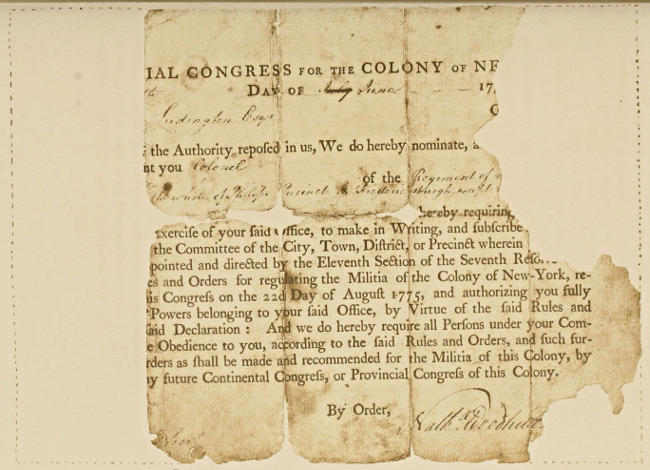 IAL CONGRESS FOR THE COLONY OF NE
th DAY OF July June 17
Ludington Esqr
the Authority reposed in us, We do hereby nominate, a
nt you Colonel
of the Regiment of
the whole of Philips Precinct
hereby requiring,
xercise of your said Office, to make in Writing, and subscribe
the Committee of the City, Town, District, or Precinct wherein
pointed and directed by the Eleventh Section of the Seventh
es and Orders for regulating the Militia of the Colony of New-York, re-
is Congress on the 22d Day of August 1775, and authorizing you fully
Powers belonging to your said Office, by Virtue of the said Rules and
aid Declaration : And we do hereby require all Persons under your Com-
e Obedience to you, according to the said Rules and Orders, and such fur-
rders as shall be made and recommended for the Militia of this Colony, by
y future Continental Congress, or Provincial Congress of this Colony.
By Order,
Nathl. Woodhull